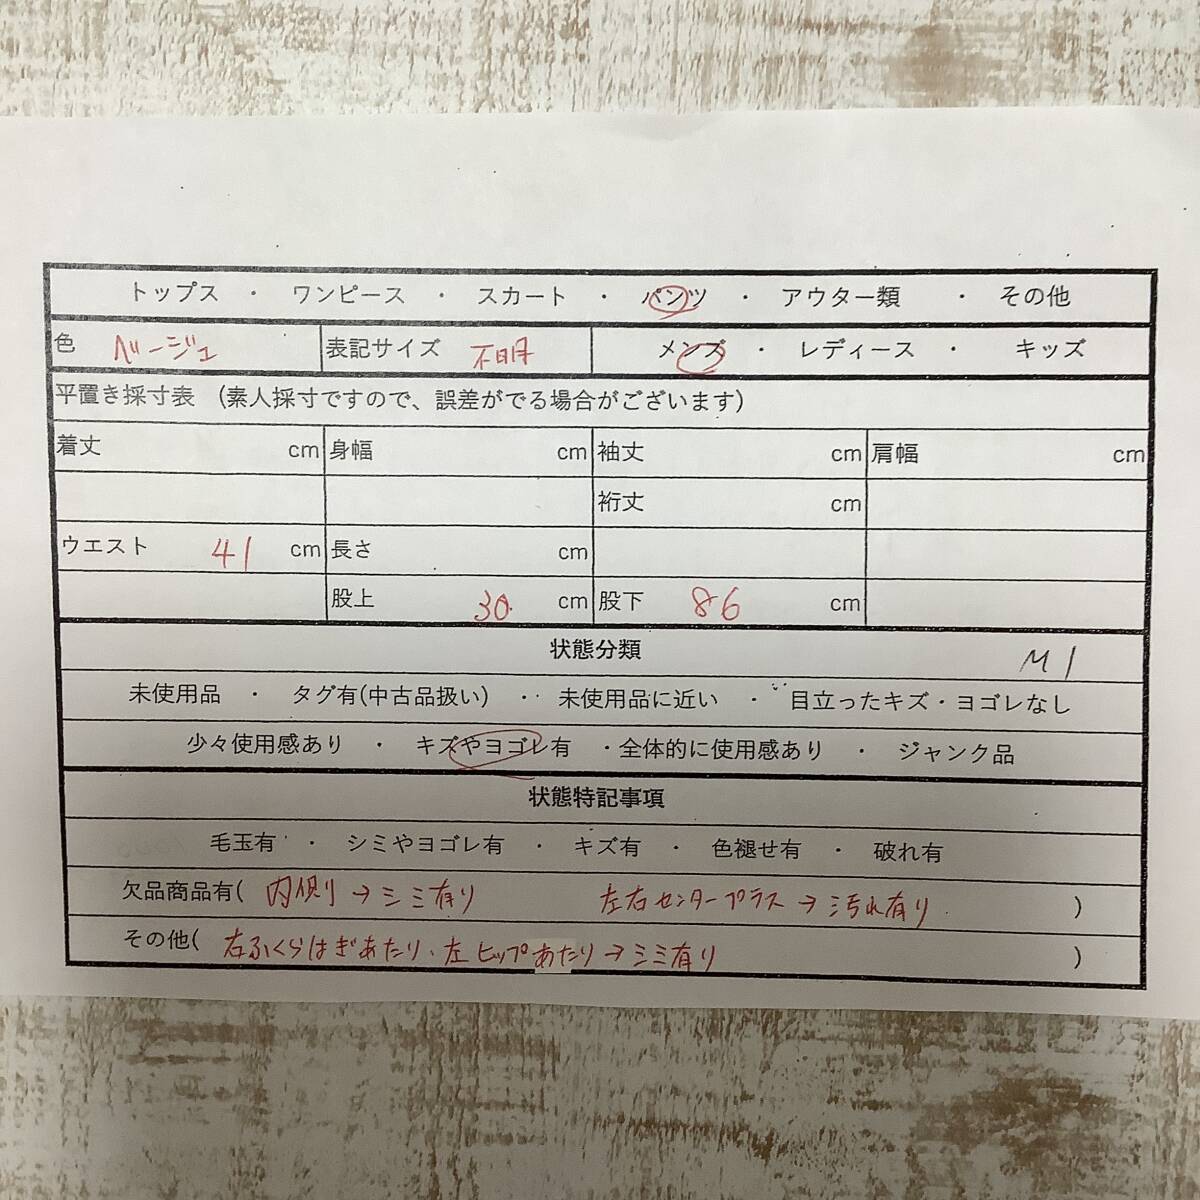 トップス ・ ワンピース ・ スカート ・ パンツ ・ アウター類 ・ その他
色 ベージュ 表記サイズ 不明 メンズ ・ レディース ・ キッズ
平置き採寸表 (素人採寸ですので、誤差がでる場合がございます)
着丈 cm 身幅 cm 袖丈 cm 肩幅 cm
裄丈 cm
ウエスト 41 cm 長さ cm
股上 30 cm 股下 86 cm
状態分類 M1
未使用品 ・ タグ有(中古品扱い) ・・ 未使用品に近い ・ 目立ったキズ・ヨゴレなし
少々使用感あり ・ キズやヨゴレ有 ・全体的に使用感あり ・ ジャンク品
状態特記事項
毛玉有 ・ シミやヨゴレ有 ・ キズ有 ・ 色褪せ有 ・ 破れ有
欠品商品有( 内側→シミ有り 左右センタープラス→汚れ有り )
その他( 右ふくらはぎあたり、左ヒップあたり→シミ有り )